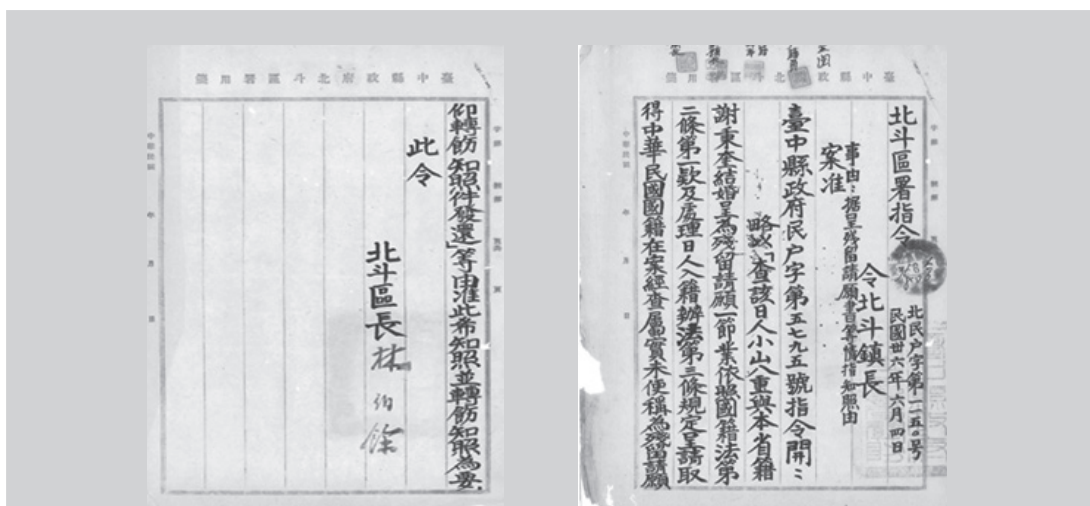 臺中縣政府北斗區署用箋
北斗區署指令
北民户字第一一五〇号
民國卅六年六月四日
令北斗鎮長
事由：据呈殘留請願書等情指知照由
案准
臺中縣政府民户字第五七九五號指令開：
略以「查該日人小山八重與本省籍
謝秉奎結婚呈為殘留請願一節業依照國籍法第
二條第一款及處理日人入籍辦法第三條規定呈請取
得中華民國國籍在案經查屬實未便稱為殘留請願
臺中縣政府北斗區署用箋
仰轉飭知照件發還」等由准此希知照並轉飭知照為要.
此令
北斗區長林伯餘